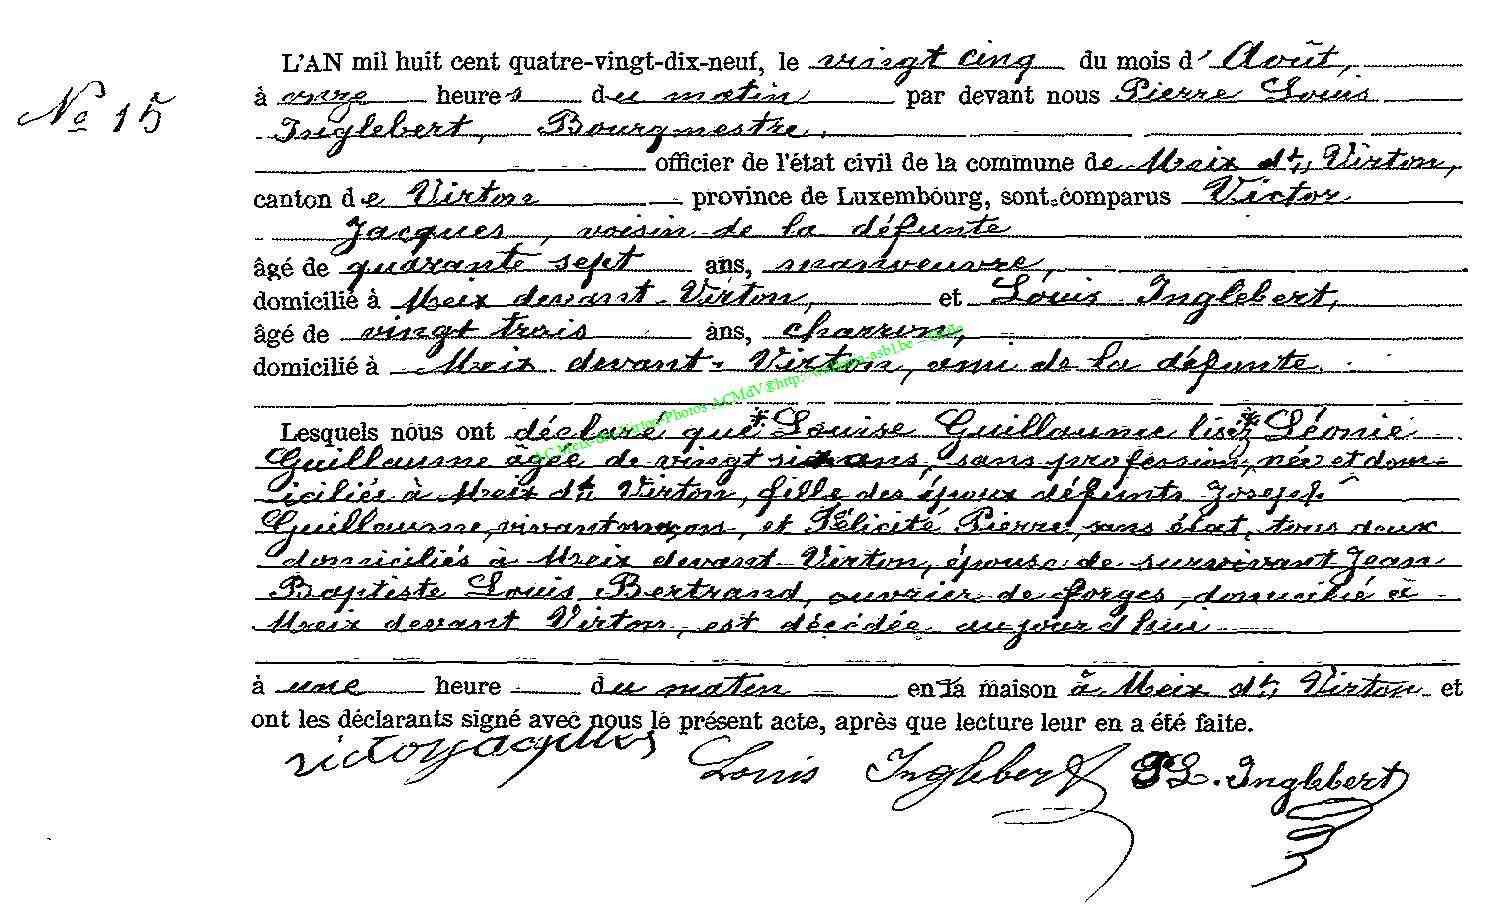 L'AN mil huit cent quatre-vingt-dix-neuf, le vingt cinq du mois d' Août,
No 15
à onze heures du matin par devant nous Pierre Louis
Inglebert, Bourgmestre.
officier de l'état civil de la commune de Meix dt Virton,
canton de Virton province de Luxembourg, sont comparus Victor
Jacques, voisin de la défunte
âgé de quarante sept ans, manoeuvre,
domicilié à Meix devant-Virton, et Louis Inglebert,
âgé de vingt trois ans, charron,
domicilié à Meix devant-Virton, ami de la défunte.
Lesquels nous ont déclaré que *Louise Guillaume lisez *Léonie
Guillaume âgée de vingt six ans, sans profession, née et dom-
iciliée à Meix dt Virton, fille des époux défunts Joseph
Guillaume, vivant maçon, et Félicité Pierre, sans état, tous deux
domiciliés à Meix devant Virton, épouse de survivant Jean
Baptiste Louis Bertrand, ouvrier de forges, domicilié à
Meix devant Virton, est décédée aujourd'hui
à une heure du matin en la maison à Meix dt Virton et
ont les déclarants signé avec nous le présent acte, après que lecture leur en a été faite.
victor jacques Louis Inglebert PL. Inglebert